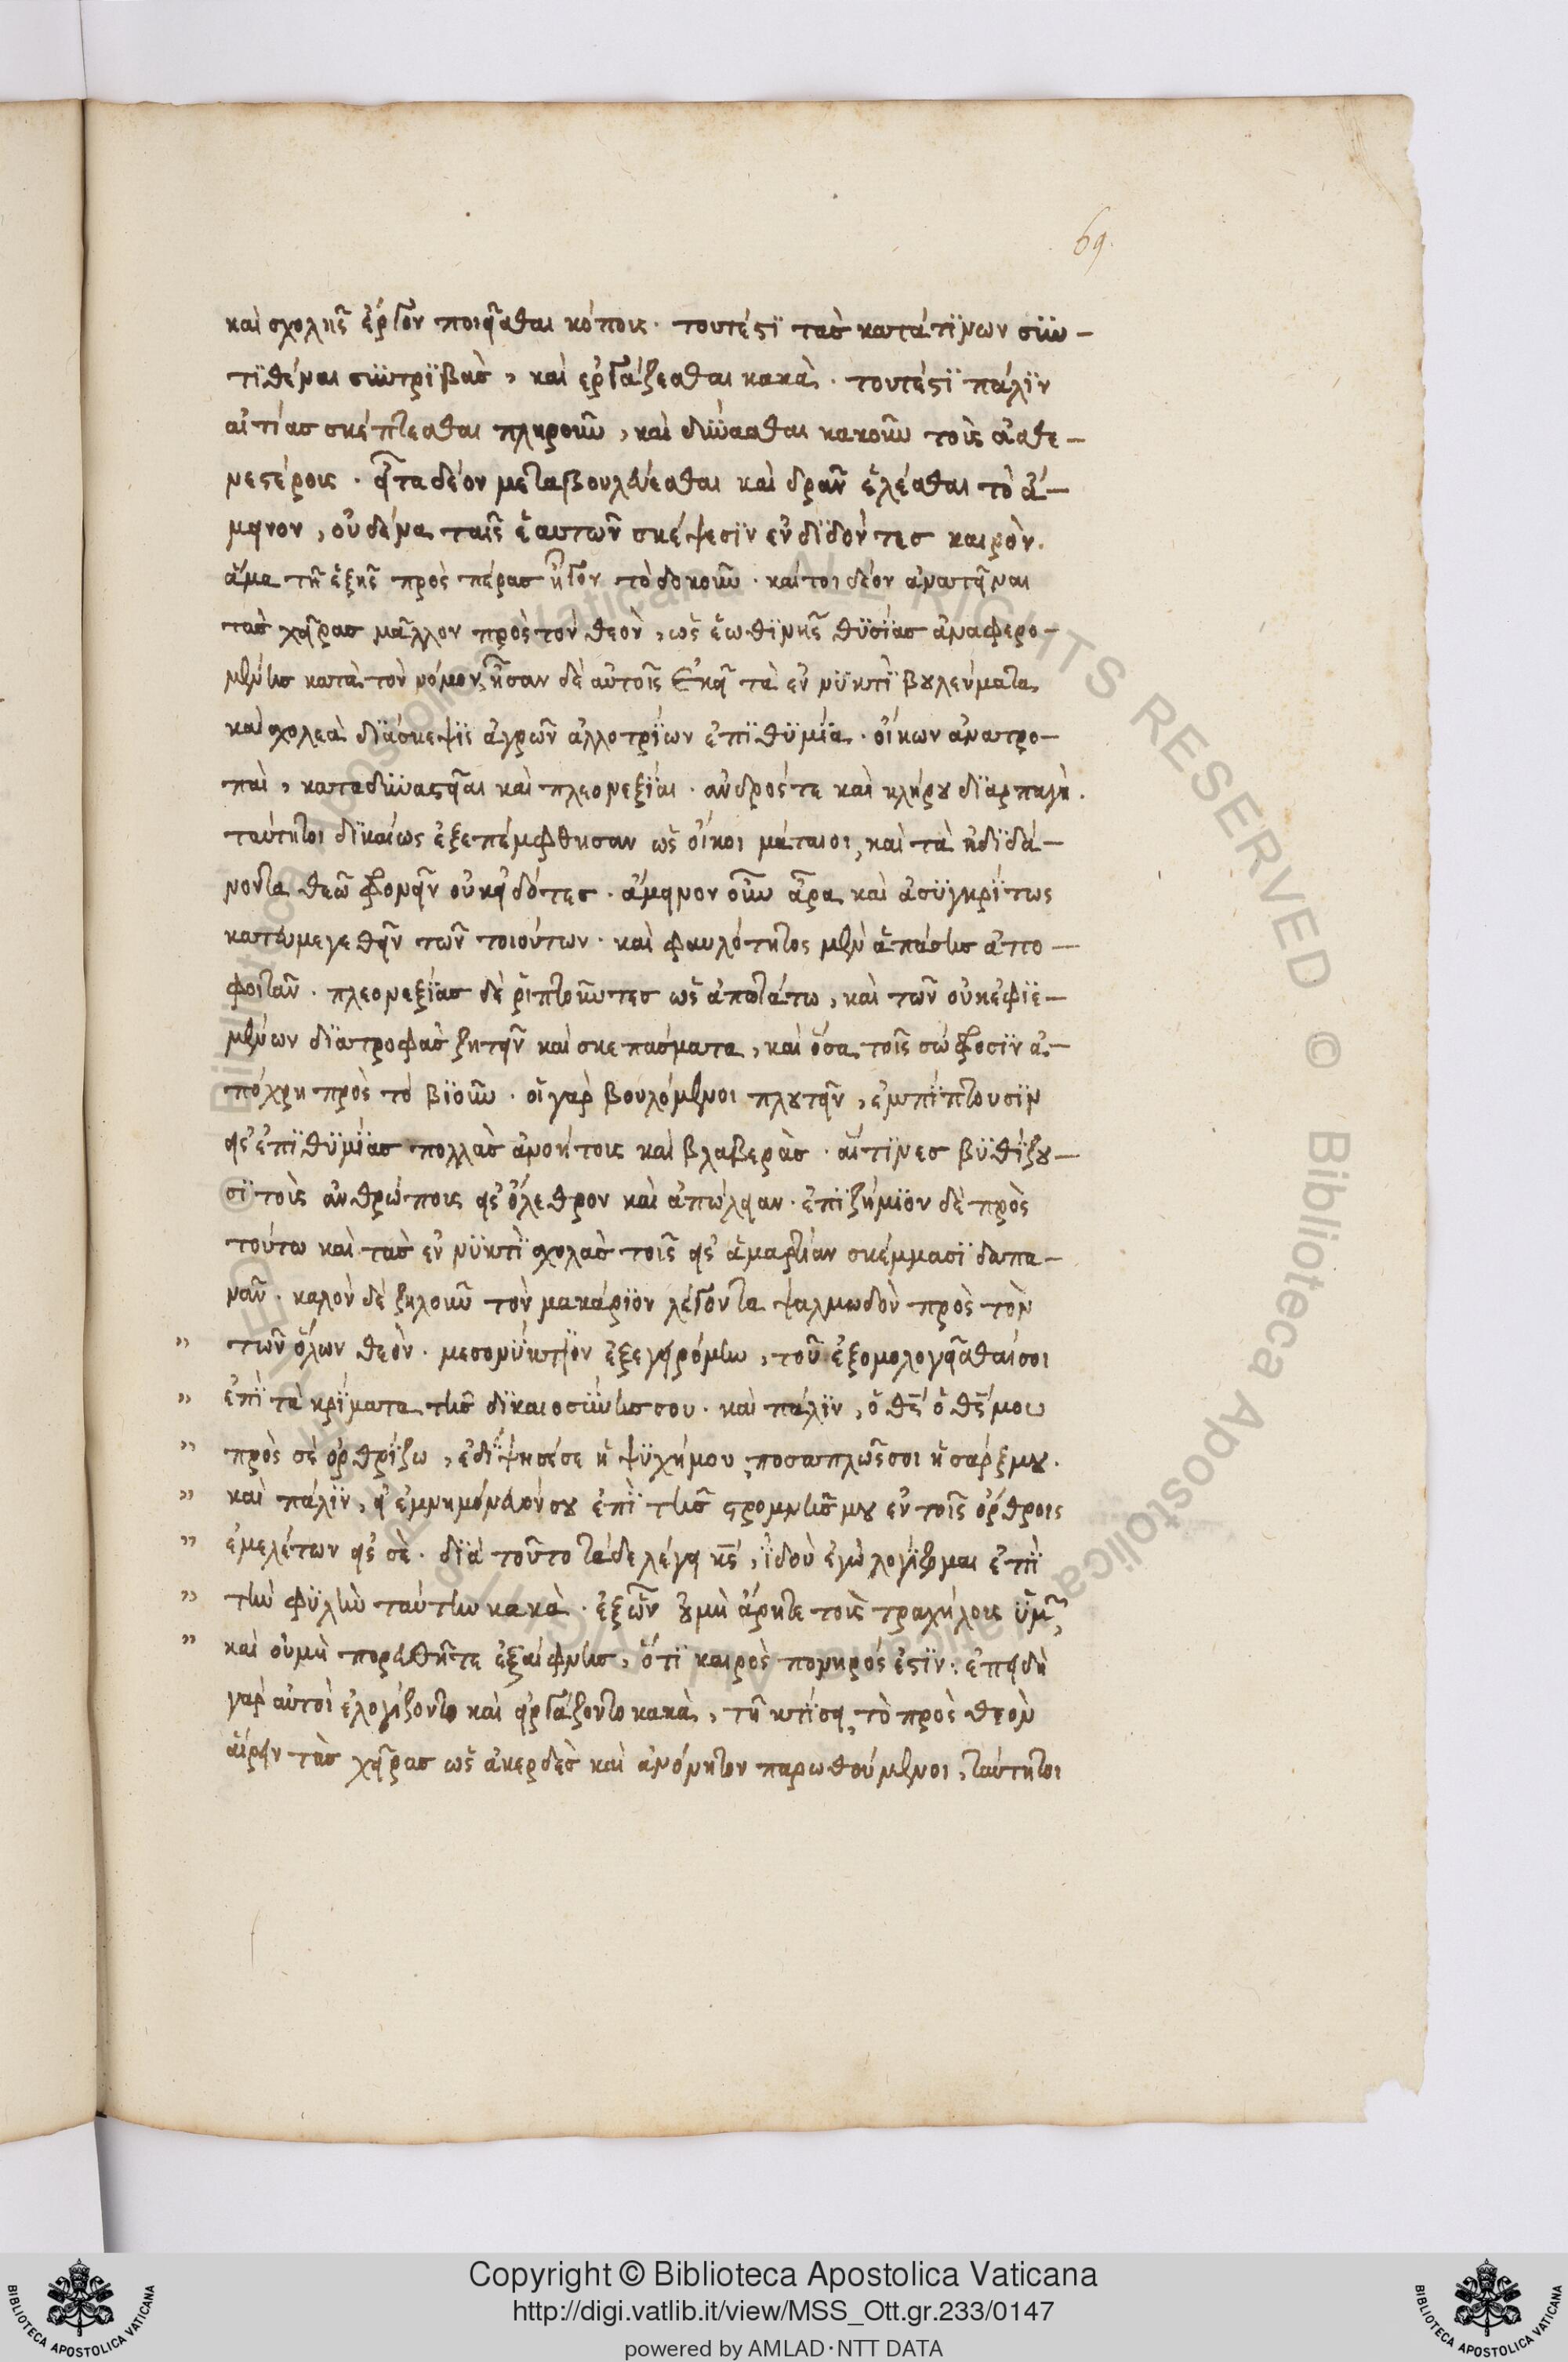 69.
καὶ σχολῆς ἔργον ποιεῖσθαι κόπους· τουτέστϊ τὰσ κατάτϊνων συν-
τϊθέναι συντρϊβὰσ, καὶ ἐργάζεσθαι κακὰ. τουτέστϊ πάλϊν
αἰτίασ σκέπτεσθαι πληροῦν, καὶ δύνασθαι κακοῦν τοὺς ἀσθε-
νεστέρους. εἶτα δέον μεταβουλεύεσθαι καὶ δρᾶν ἑλέσθαι τὸ ἄ-
μεινον, οὐδένα ταῖς ἑαυτῶν σκέψεσϊν ἐνδϊδόντεσ καιρὸν.
ἅμα τῆ ἑξῆς πρὸς πέρασ ἦγον τὸ δοκοῦν. καίτοι δέον ἀνατεῖναι
τὰσ χεῖρασ μᾶλλον πρὸς τὸν θεὸν, ὡς ἑωθϊνῆς θϋσίασ ἀναφερο-
μένησ κατὰ τὸν νόμον, ἦσαν δὲ αὐτοῖς ἐκεῖ τὰ ἐν νϋκτὶ βουλεύματα
καὶ σχολεὰ διάσκεψϊς ἀγρῶν ἀλλοτρϊων ἐπϊθϋμία. οἴκων ἀνατρο-
παὶ, καταδυναστεῖαι καὶ πλεονεξίαι. ἀνδρός τε καὶ κλήρου διαρπαγὴ.
ταύτητοι δϊκαίως ἐξεπέμφθησαν ὡς οἶκοι μάταιοι, καὶ τὰ ἡδϊδά-
νοντα θεῶ φρονεῖν οὐκ εἰδότεσ. ἄμεινον οὖν ἄρα καὶ ἀσϋγκρίτως
κατευμεγεθεῖν τῶν τοιούτων. καὶ φαυλότητος μὲν ἁπάσησ ἀπο-
φοιτᾶν. πλεονεξίασ δὲ ῥιπτοῦντεσ ὡς ἀπωτάτω, καὶ τῶν οὐκ ἐφϊε-
μένων διατροφὰσ ζητεῖν καὶ σκεπάσματα, καὶ ὅσα τοῖς σώφροσϊν ἀ-
πόχρη πρὸς τὸ βϊοῦν. οἱ γὰρ βουλόμενοι πλουτεῖν, ἐμπίπτουσϊν
εἰς ἐπϊθϋμίασ πολλὰσ ἀνοήτους καὶ βλαβερὰσ. αἵτϊνεσ βϋθίζου-
σϊ τοὺς ἀνθρώπους εἰς ὄλεθρον καὶ ἀπώλειαν. ἐπϊζήμϊον δὲ πρὸς
τούτω καὶ τὰσ ἐν νϋκτὶ σχολὰσ τοῖς εἰς ἁμαρτίαν σκέμμασϊ δαπα-
νᾶν. καλὸν δὲ ζηλοῦν τὸν μακάρϊον λέγοντα ψαλμωδὸν πρὸς τὸν
" τῶν ὅλων θεὸν. μεσονύκτϊον ἐξεγειρόμην, τοῦ ἐξομολογεῖσθαίσοι
" ἐπὶ τὰ κρίματα τῆσ δϊκαιοσύνησ σου. καὶ πάλϊν, ὁ θς ὁ θς μου
" πρὸς σέ ὀρθρίζω, ἐδίψησέσε ἡ ψϋχήμου, ποσαπλῶς σοι ἡ σάρξ μου.
" καὶ πάλϊν, εἰ ἐμνημόνευόν σου ἐπὶ τῆσ στρωμνῆσ μου ἐν τοῖς ὄρθροις
" ἐμελέτων εἰς σὲ. δϊὰ τοῦτο τάδε λέγει κς, ἰδοὺ ἐγὼ λογίζομαι ἐπὶ
" τὴν φϋλὴν ταύτην κακὰ. ἐξ ὧν οὐ μὴ ἄρητε τοὺς τραχήλους ὑμῶν,
" καὶ οὐμὴ πορευθῆτε ἐξαίφνησ, ὅτϊ καιρὸς πονηρός ἐστϊν: ἐπειδὴ
γὰρ αὐτοὶ ἐλογίζοντο καὶ εἰργάζοντο κακὰ, τῆ κτίσει, τὸ πρὸς θεὸν
αἴρειν τὰσ χεῖρασ ὡς ἀκερδὲσ καὶ ἀνόνητον παρωθούμενοι, ταύτητοι
Copyright © Biblioteca Apostolica Vaticana
http://digi.vatlib.it/view/MSS_Ott.gr.233/0147
powered by AMLAD·NTT DATA
BIBLIOTECA APOSTOLICA VATICANA
BIBLIOTECA APOSTOLICA VATICANA